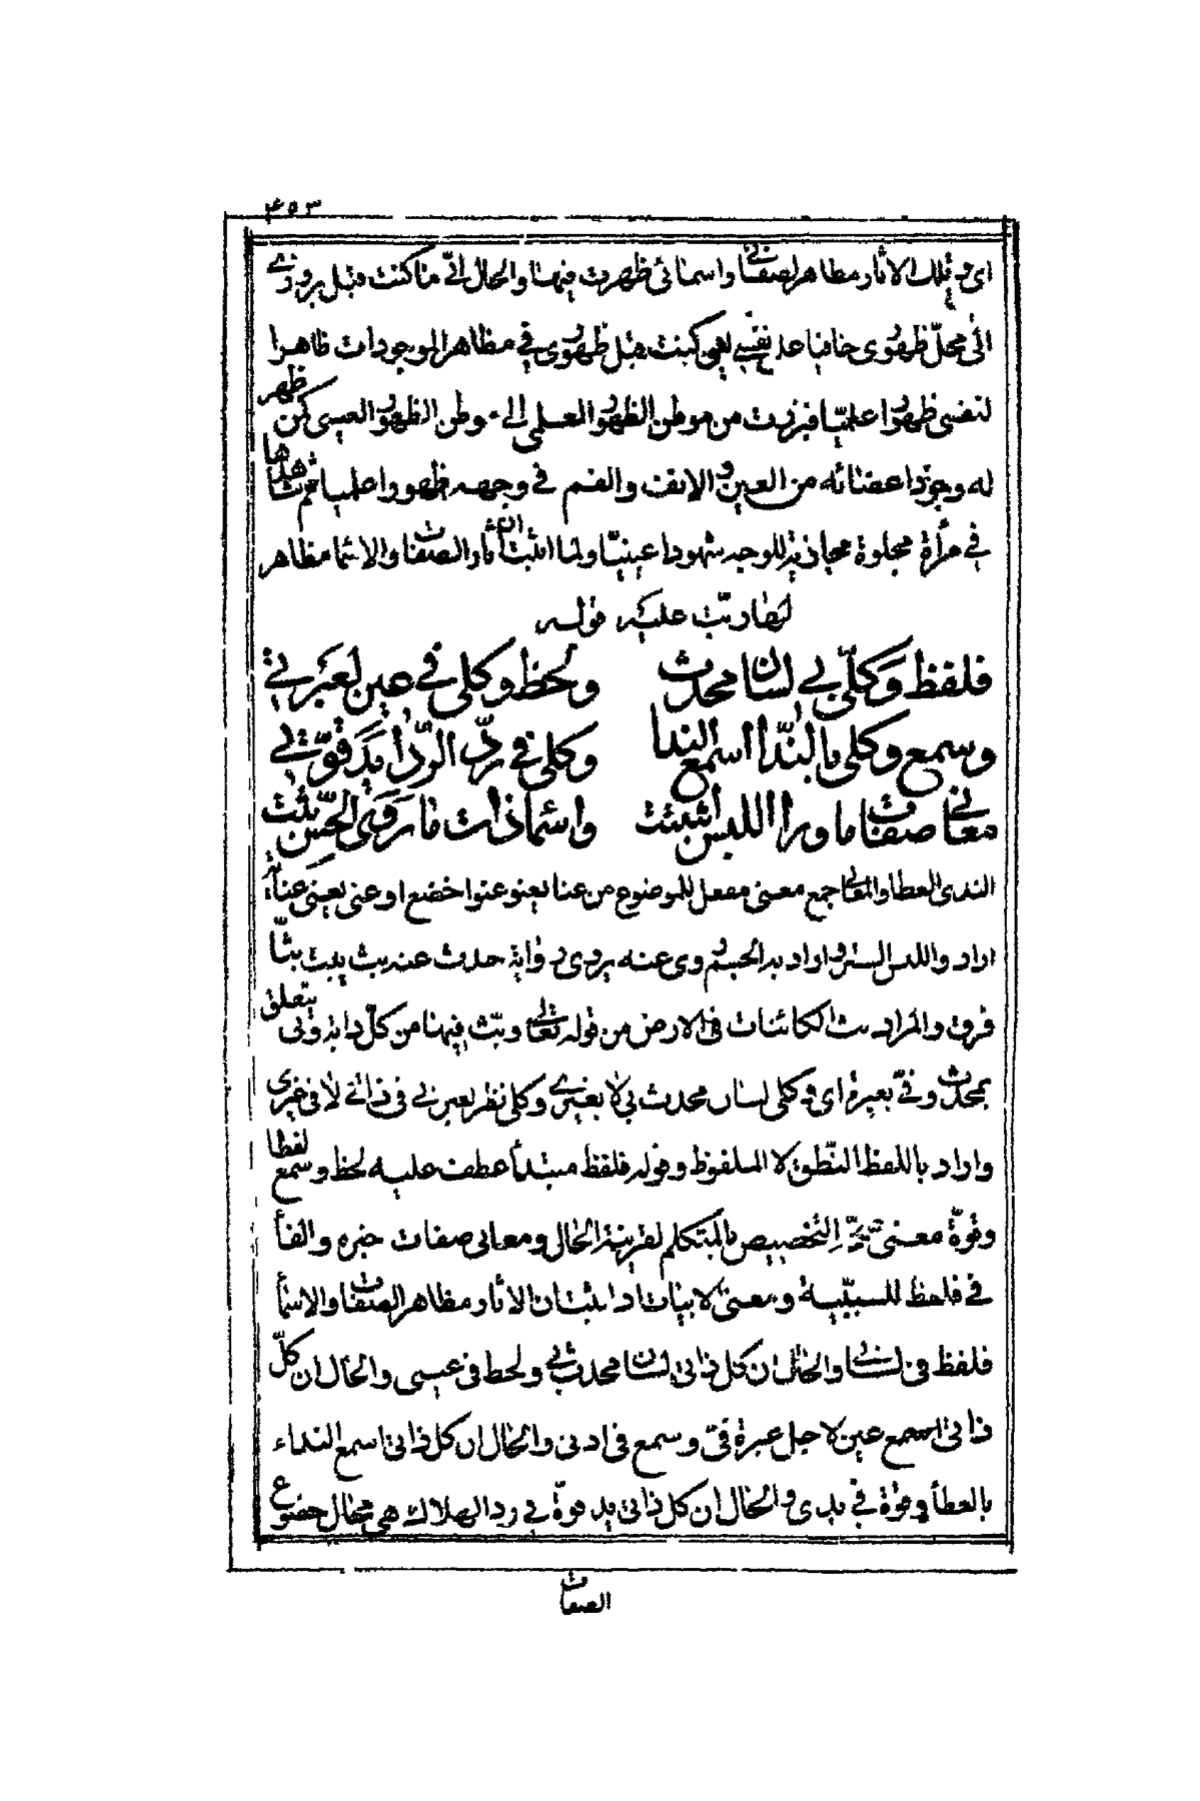 ٤٥٣
اى وتلك الاثار مظاهر لصفاتى واسمائى ظهرت فيها والحال انّى ما كنت قبل بروزى
الى محلّ ظهورى خافيا على نفسى لانى كنت قبل ظهورى فى مظاهر الموجودات ظاهرا
لنفسى ظهورا علميّا فبرزت من موطن الظهور العلمى الى موطن الظهور العينى كمن ظهر
له وجود اعضائه من العين والانف والفم فى وجهه ظهورا علميا ثم شاهدها
فى مرأة مجلوة محاذية للوجه شهودا عينيّا ولما اثبت ان الاثار والصفات والاسما مظاهر
لها رتّب عليه قوله
فلفظ وكلّى بى لسان محدث ولحظ وكلى فىّ عين لعبرتى
وسمع وكلى بالنّدا اسمع الندا وكلى فى ردّ الرّدا يد قوّتى
معانى صفات ما ورا اللبس اثبتت واسما ذات ما روى الحسّ بثّت
الندى العطا والمعانى جمع معنى مفعل للموضوع من عنا يعنو عنوا خضع او عنى يعنى عناية
اراد واللبس الستر واراد به الجسم وروى عنه يروى رواية حدث عنه بث يبث بثّا
فرق والمراد بث الكائنات فى الارض من قوله تعالى وبثّ فيها من كلّ دابة وبى يتعلق
بمحدث وفىّ بعبرة اى وكلى لسان محدث بى لا بغيرى وكلى نظر لعبرتى فى ذاتى لا فى غيرى
واراد باللفظ النّطق لا الملفوظ وقوله فلفظ مبتدأ عطف عليه لحظ وسمع لفظا
وقوّة معنى بالمتكلم لقرينة الحال ومعانى صفات خبره والفأ
فى فلفظ للسببيّة ومعنى الابيات اذا ثبت ان الاثار مظاهر الصفات والاسمأ
فلفظ فى لسانى والحال ان كل ذاتى لسان محدث بى ولحظ فى عينى والحال ان كلّ
ذاتى عين لاجل عبرة فىّ وسمع فى اذنى والحال ان كل ذاتى اسمع النداء
بالعطأ وقوّة فى يدى والحال ان كل ذاتى يد قوّة فى رد الهلاك هى محال خضوع
الصفات